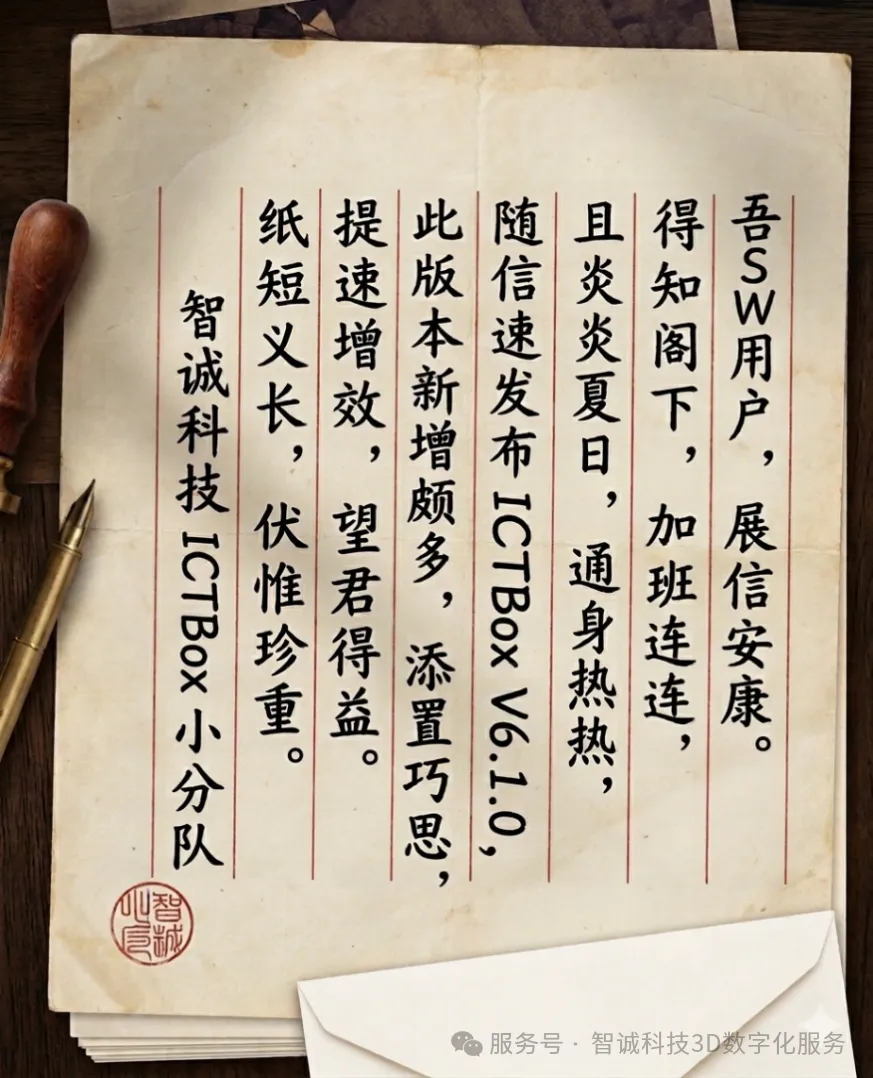 吾SW用户，展信安康。
得知阁下，加班连连，
且炎炎夏日，通身热热，
随信速发布ICTBox V6.1.0，
此版本新增颇多，添置巧思，
提速增效，望君得益。
纸短义长，伏惟珍重。
智诚科技 ICTBox 小分队
智诚
服务号 · 智诚科技3D数字化服务